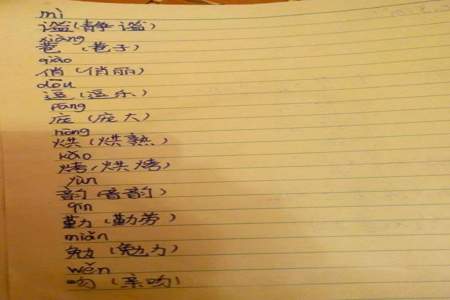 mì
谧(静谧)
xiàng
巷(巷子)
qiào
俏(俏丽)
dòu
逗(逗乐)
páng
庞(庞大)
hōng
烘(烘熟)
kǎo
烤(烘烤)
yùn
韵(音韵)
qín
勤(勤劳)
miǎn
勉(勉力)
wěn
吻(亲吻)